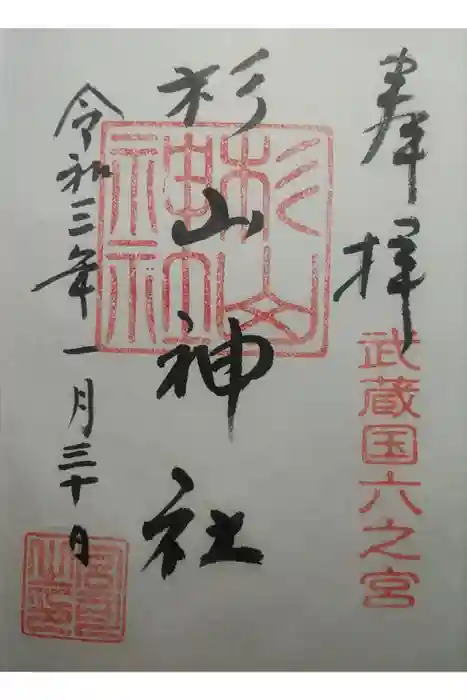 奉拝
武蔵国六之宮
杉山神社
杉山
神社
令和三年一月三十日
宮司
之印